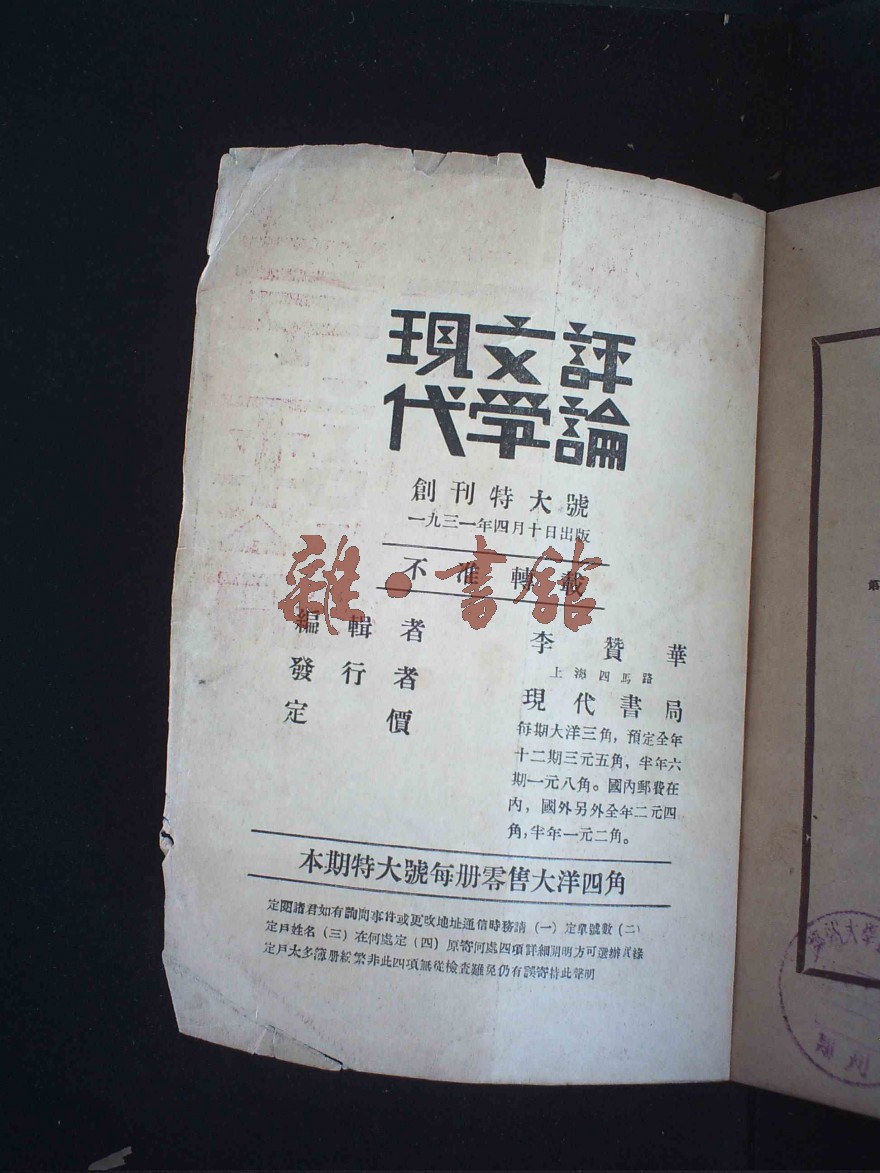 現代文学評論
創刊特大號
一九三一年四月十日出版
不准轉載
編輯者 李贊華
上海四馬路
發行者 現代書局
定價 每期大洋三角，預定全年
十二期三元五角，半年六
期一元八角。國內郵費在
內，國外另外全年二元四
角，半年一元二角。
本期特大號每册零售大洋四角
定閱諸君如有詢問事件或更改地址通信時務請（一）定單號數（二）
定戶姓名（三）在何處定（四）原寄何處四項詳細開明方可選辦式樣
定戶太多簿册紛繁非此四項無從檢查難免仍有誤寄特此聲明
雜·書館
第
大學
期刊